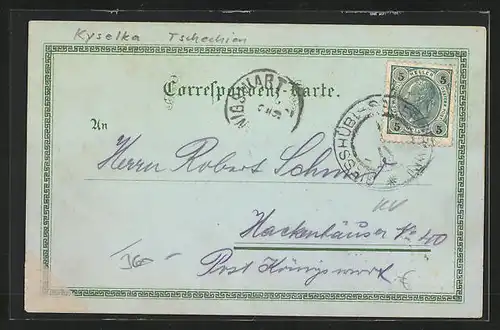 Kyselka Tschechien
Correspondenz-Karte.
5 HELLER 5
5 5
NIGSWART
GIESSHÜBL
An
Herrn Robert Schmid
Hackenhäuser No 40
Post Königswart